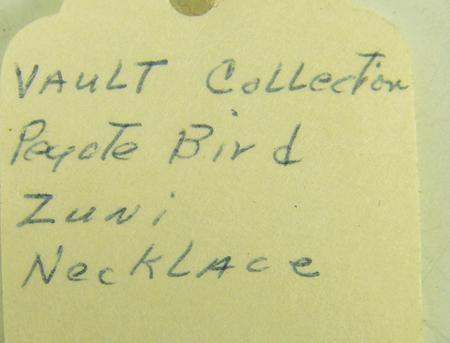 VAULT Collection
Peyote Bird
Zuni
NeckLAce